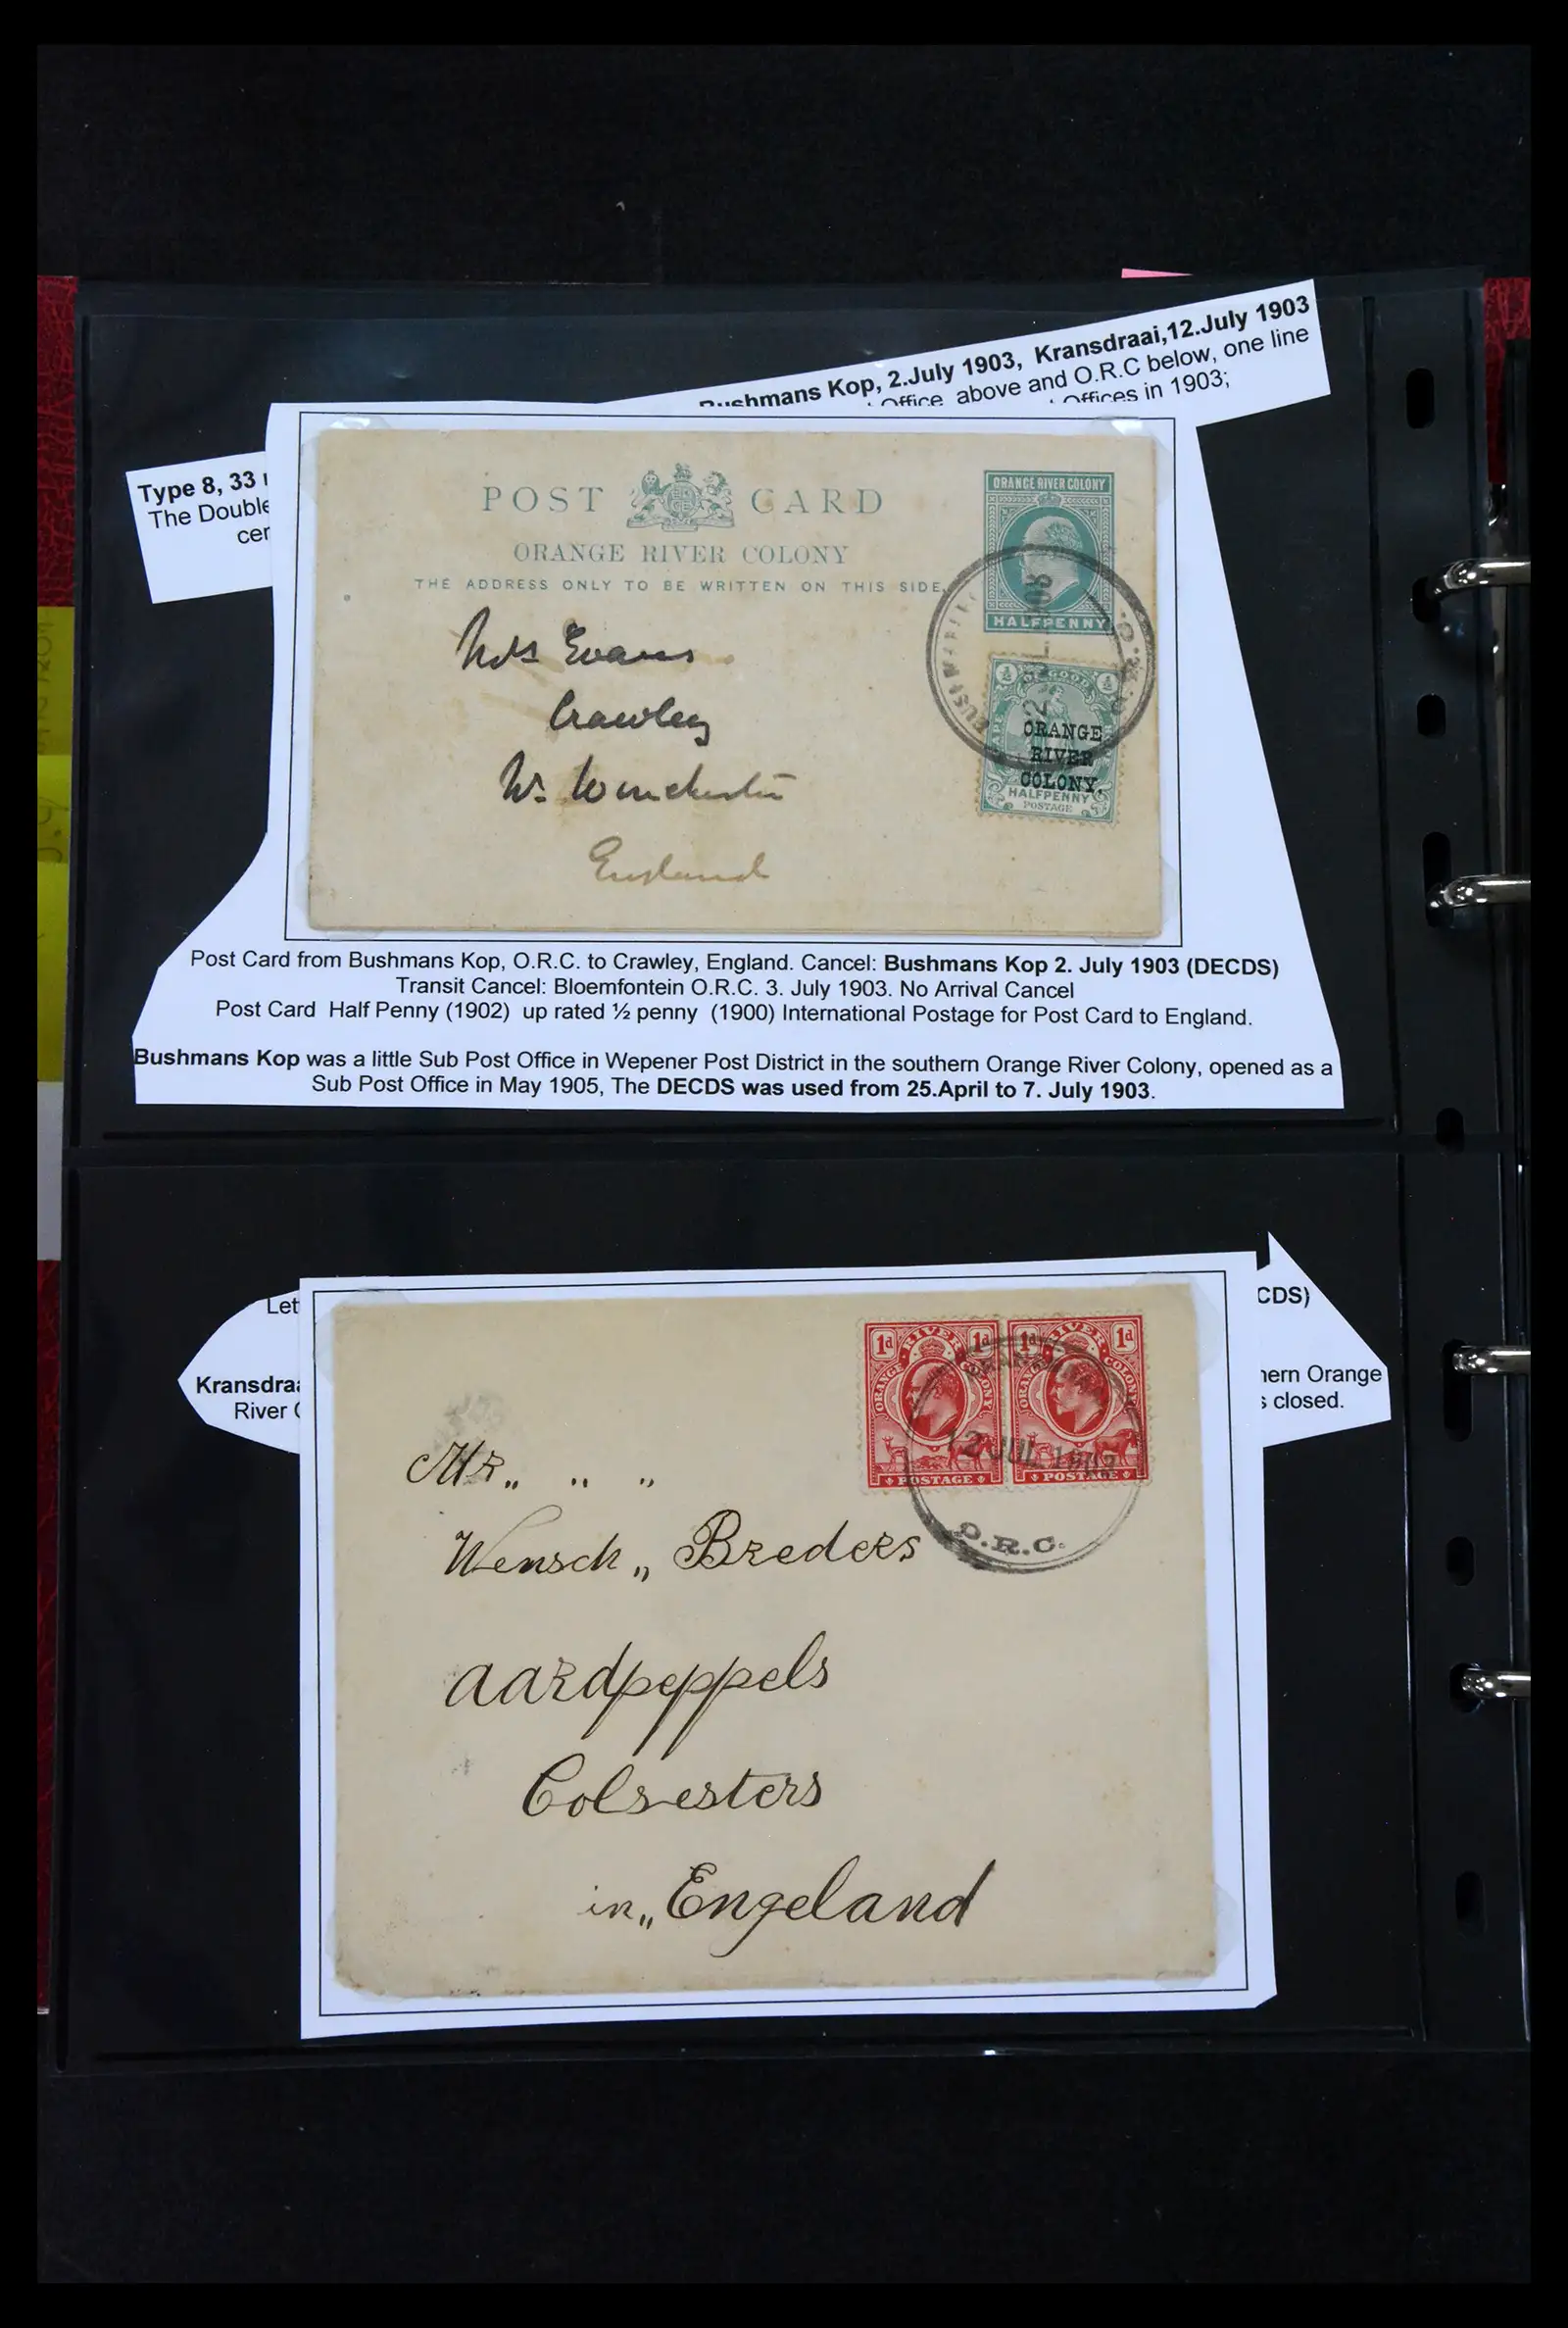 Bushmans Kop, 2.July 1903, Kransdraai,12.July 1903
Office above and O.R.C below, one line
Offices in 1903;
Type 8, 33
The Double
cer
POST CARD
ORANGE RIVER COLONY
THE ADDRESS ONLY TO BE WRITTEN ON THIS SIDE.
ORANGE RIVER COLONY
HALFPENNY
2 JUL
O.R.C.
½ ½
ORANGE
RIVER
COLONY.
HALFPENNY
POSTAGE
Mrs Evans
Crawley
Nr Winchester
England
Post Card from Bushmans Kop, O.R.C. to Crawley, England. Cancel: Bushmans Kop 2. July 1903 (DECDS)
Transit Cancel: Bloemfontein O.R.C. 3. July 1903. No Arrival Cancel
Post Card Half Penny (1902) up rated ½ penny (1900) International Postage for Post Card to England.
Bushmans Kop was a little Sub Post Office in Wepener Post District in the southern Orange River Colony, opened as a
Sub Post Office in May 1905, The DECDS was used from 25.April to 7. July 1903.
Let
CDS)
Kransdraa
hern Orange
River
s closed.
1d ORANGE RIVER COLONY 1d
POSTAGE
1d ORANGE RIVER COLONY 1d
POSTAGE
12 JUL 1903
O.R.C.
Mr,, ,, ,,
Wensch,, Breders
aardpeppels
Colsesters
in,, Engeland